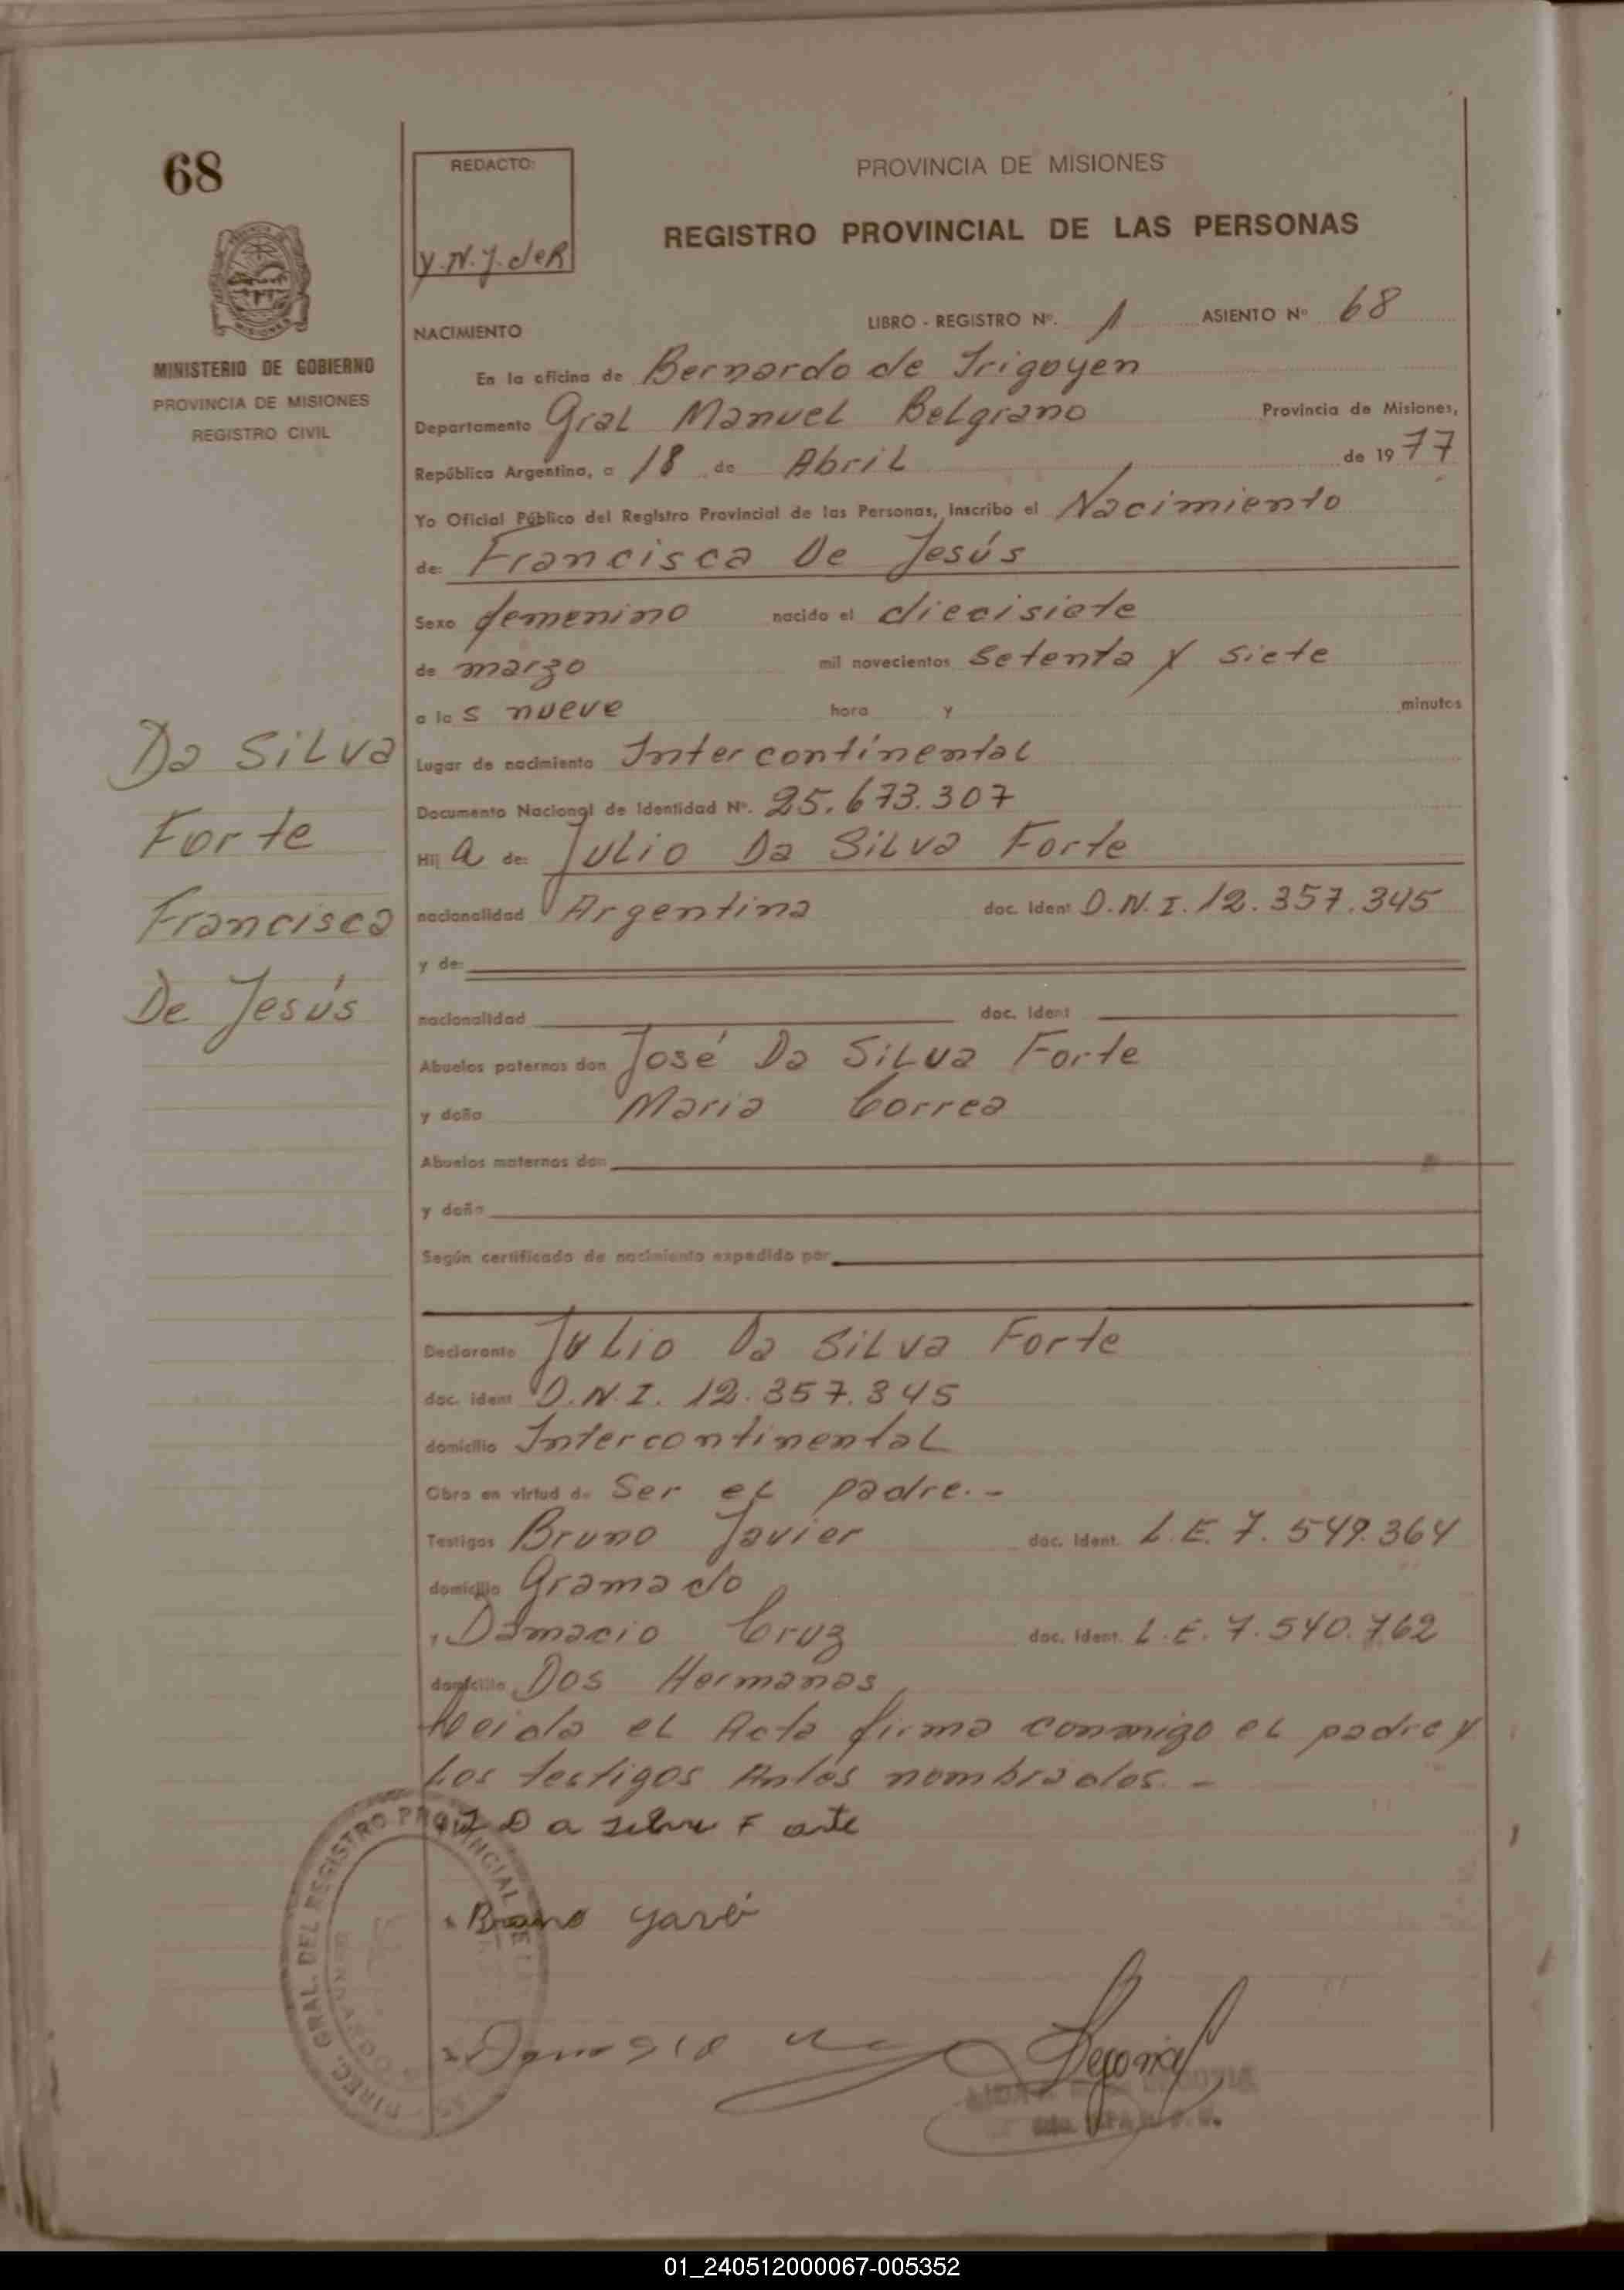 68
REDACTO:
Y.N.J. deR
PROVINCIA DE MISIONES
REGISTRO PROVINCIAL DE LAS PERSONAS
MINISTERIO DE GOBIERNO
PROVINCIA DE MISIONES
REGISTRO CIVIL
NACIMIENTO
LIBRO - REGISTRO Nº. 1 ASIENTO Nº 68
En la oficina de Bernardo de Irigoyen
Departamento Gral Manuel Belgrano Provincia de Misiones,
República Argentina, a 18 de Abril de 1977
Yo Oficial Público del Registro Provincial de las Personas, Inscribo el Nacimiento
de: Francisca De Jesús
Sexo femenino nacido el diecisiete
de marzo mil novecientos setenta y siete
a las nueve hora y minutos
Da Silva
Forte
Francisca
De Jesús
Lugar de nacimiento Intercontinental
Documento Nacional de Identidad Nº. 25.673.307
Hija de: Julio Da Silva Forte
nacionalidad Argentina doc. Ident D.N.I. 12.357.345
y de:
nacionalidad doc. Ident
Abuelos paternos don José Da Silva Forte
y doña Maria Correa
Abuelos maternos don
y doña
Según certificado de nacimiento expedido por
Declarante Julio Da Silva Forte
doc. ident D.N.I. 12.357.345
domicilio Intercontinental
Obra en virtud de Ser el padre.-
Testigos Bruno Javier doc. Ident. L.E. 7.549.364
domicilio Gramado
, Damacio Cruz doc. Ident. L.E. 7.540.762
domicilio Dos Hermanas
Leida el Acta firma conmigo el padre y
los testigos Antes nombrados.-
Da Silva Forte
Bruno
DIREC. GRAL. DEL REGISTRO PROVINCIAL DE
01_240512000067-005352